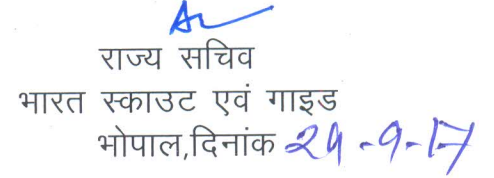 राज्य सचिव
भारत स्काउट एवं गाइड
भोपाल,दिनांक 29-9-17